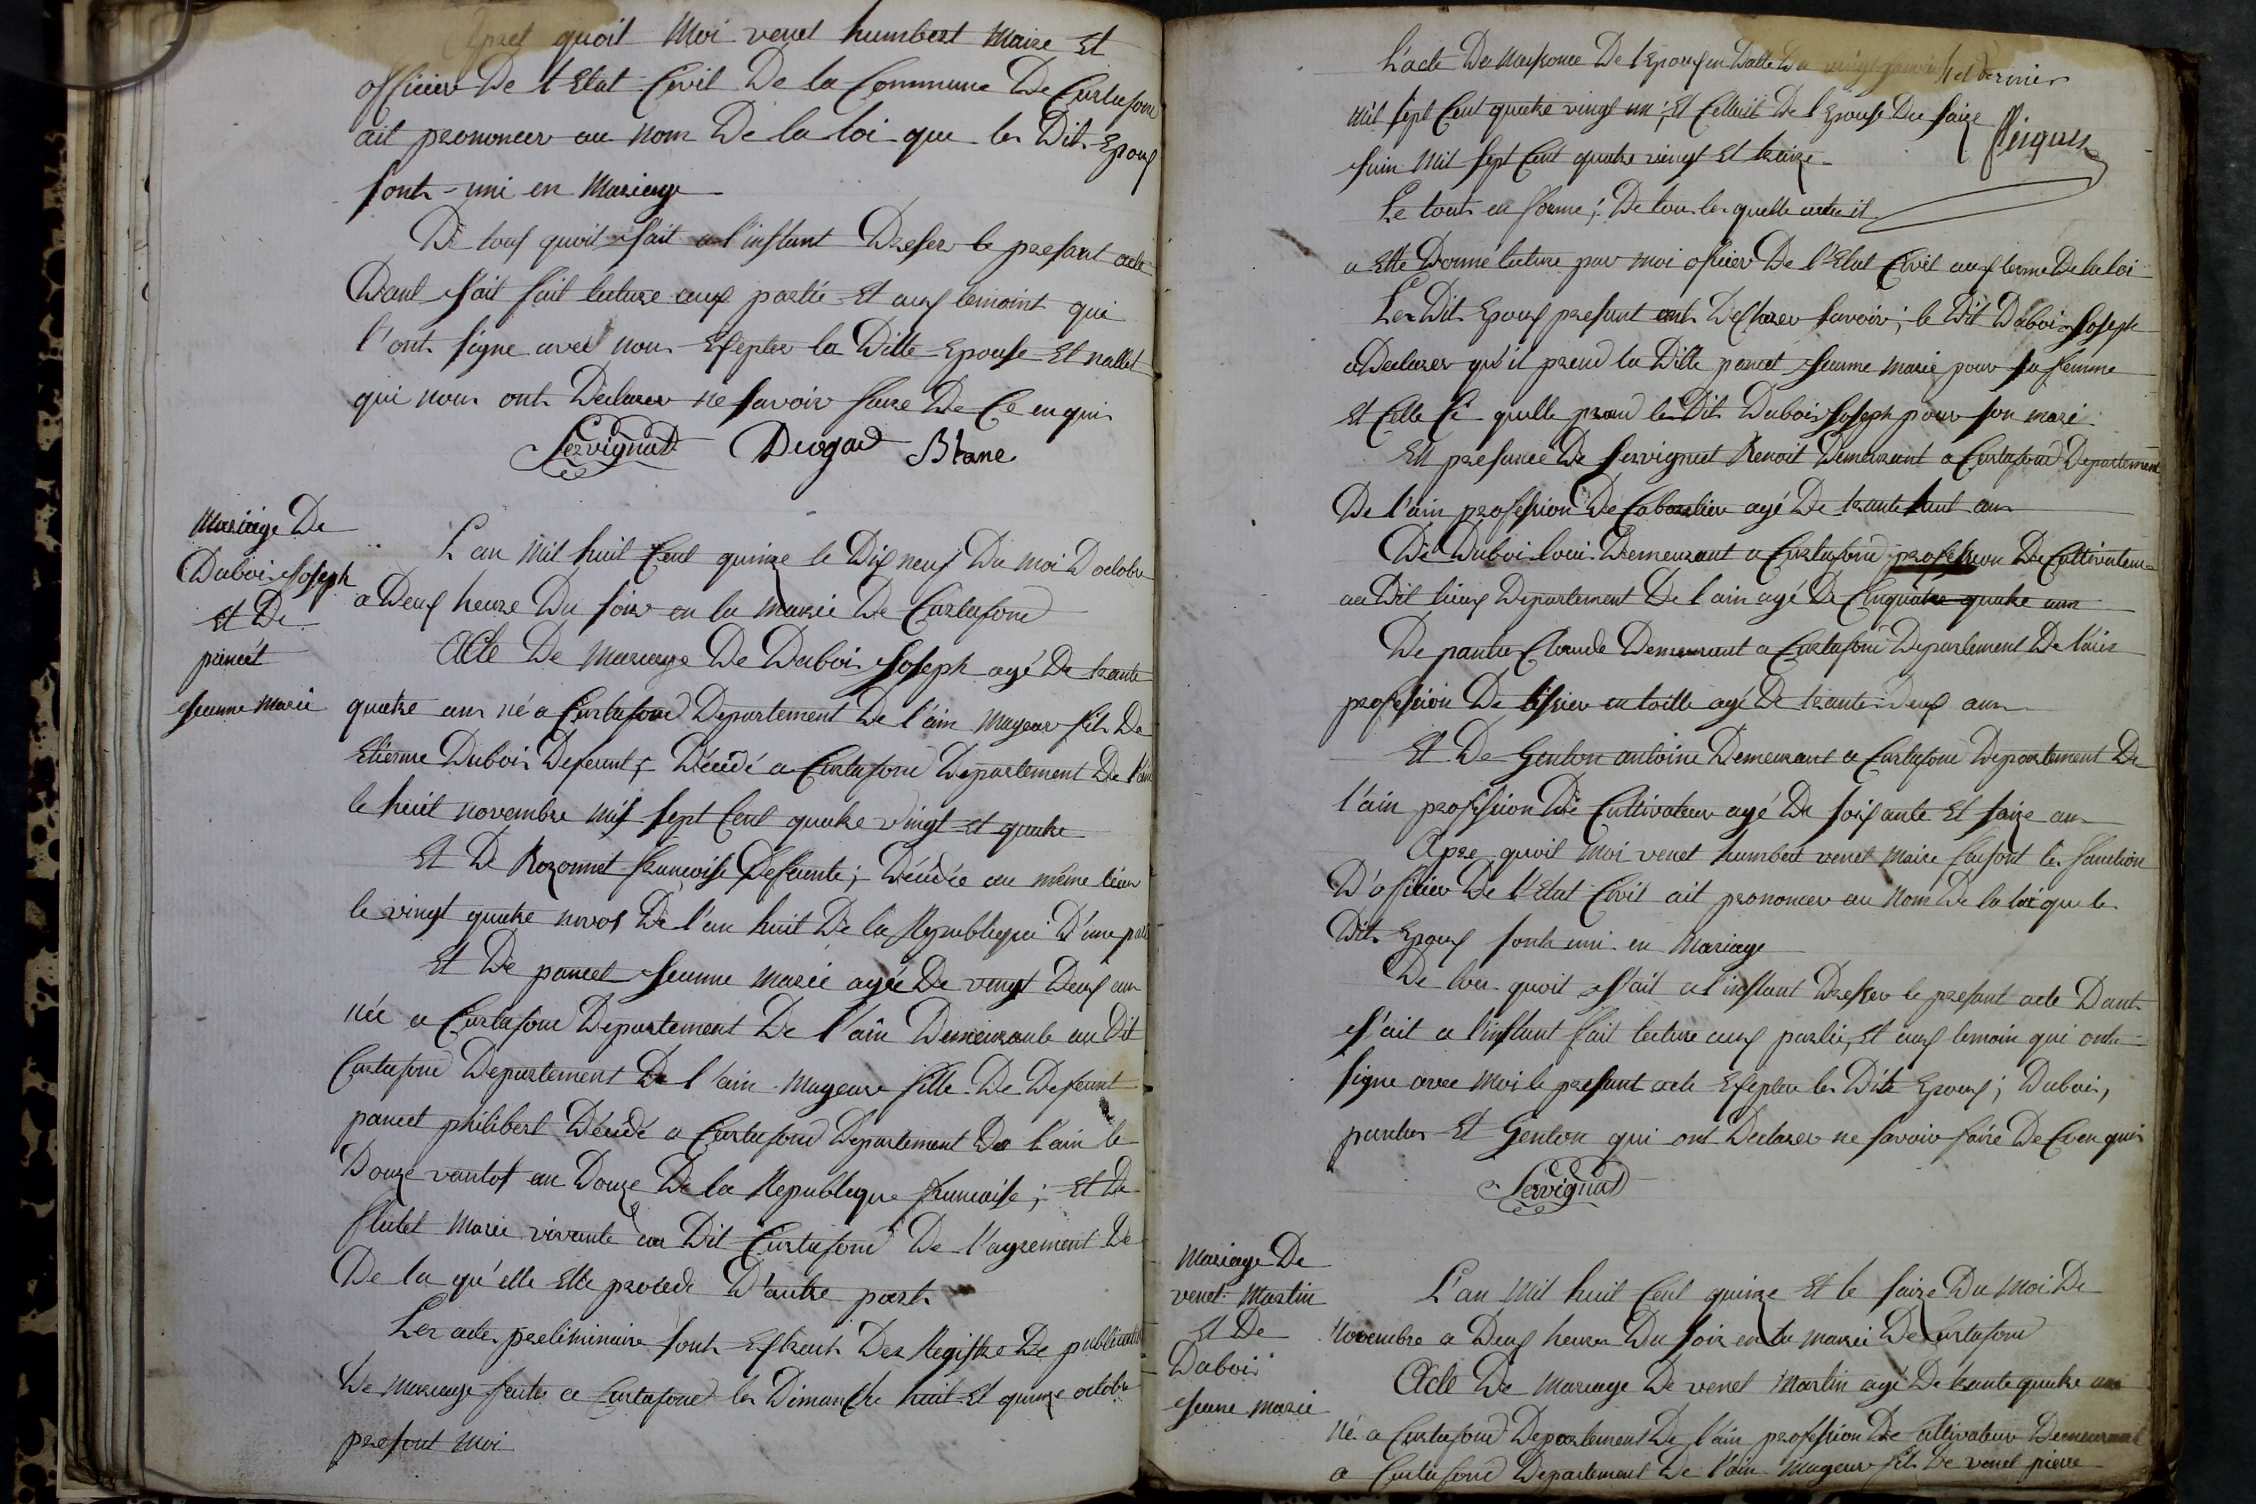 quoit Moi venet humbert Maire Et
officier De l Etat Civil De la Commune De Curtafond
ait prononcer au nom De la loi que les Dits Epouf
sonts uni en Mariage
De touf quoit fait a l'instant Dreser le presant acte
Dant fait lecture auf partie Et auf temoint qui
l'ont signe avec nous Esepter la Ditte Epouse Et nallet
qui nous onts Declarer ne savoir faire De Ce enquis
Servignat Duvgad Blanc
Mariage De
Dubois Joseph
Et De
pancet
Jeanne Marie
L an Mil huit Cent quinze le Dif neuf Du moi D octobre
a Deuf heure Du soir en la Marie De Curtafond
Acte De Mariage De Dubois Joseph agé De trante
quatre ans né a Curtafond Departement De l'ain Mageur fils De
Etienne Dubois Defeunt ; Décédé a Curtafond Departement De l'ain
le huit novembre mil sept Cent quatre vingt et quatre
Et De Rozonnet francoise Defeunte ; Décédée au même lieu
le vingt quatre nivos De l'an huit De la Republique D'une part
Et De pancet Jeanne Marie agée De vingt Deuf ans
née a Curtafond Departement De l'ain Demeurante au Dit
Curtafond Departement De l'ain Mageure fille De Defeunt
pancet philibert Décédé a Curtafond Departement De l'ain le
Douze vantos an Douze De la Republique francaise ; Et De
Marie vivante au Dit Curtafond De l'agrement De
De la qu'elle Elle procede D'autre part
Les actes preliminaire sont Estreut Des Registre De publication
De Mariage faites a Curtafond les Dimanche huit Et quinze octobre
presant moi
L'acte De Naisance De l Epouf en Datte Du vingt
mil sept Cent quatre vingt un ; Et Celluit De l Epouse Du saize
Juin Mil sept Cent quatre vingt Et traize
Le touts en forme ; De tous les quelle actes il
a Ette Donné lecture par moi oficier De l'Etat Civil auf terme De la loi
Les Dit Epouf presant onts Declarer savoir ; le Dit Dubois Joseph
a Declarer qu'il prend la Ditte pancet Jeanne Marie pour sa femme
Et Celle Ci quelle prend le Dit Dubois Joseph pour son mari
En presance De Servignat Benoit Demeurant a Curtafond Departement
De l'ain profession De Cabartier agé De trante huit ans
De Duboi loui Demeurant a Curtafond profession De Cultivateur
au Dit lieuf Departement De l'ain agé De Cinquante quatre ans
De panter Claude Demeurant a Curtafond Departement De l'ain
profession De tisier en toille agé De trante Deuf ans
Et De Genton antoine Demeurant a Curtafond Departement De
l'ain profession De Cultivateur agé De soisante Et saize ans
Apre quoit Moi venet humbert venet Maire faisant les fonction
D'oficier De l'Etat Civil ait prononcer au nom De la loi que les
Dits Epouf sonts uni en Mariage
De tous quoit fait a l'instant Dreser le presant acte Dant
fait a l'instant fait lecture auf partie, Et auf temoin qui onts
signe avec Moi le presant acte Esepter les Dits Epouf ; Dubois,
panter Et Genton qui ont Declarer ne savoir faire De Ce enquis
Servignat
Mariage De
venet Martin
Et De
Duboii
Jeane Marie
L'an Mil huit Cent quinze Et le saize Du Moi De
Novembre a Deuf heures Du soir en la marie De Curtafond
Acte De Mariage De venet Martin agé De trante quatre ans
né a Curtafond Departement De l'ain profession De cultivateur Demeurant
a Curtafond Departement De l'ain Mageur fils De venet pierre